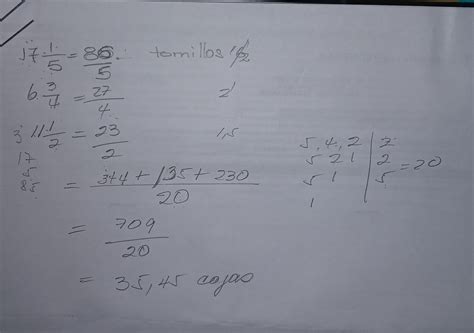 17 1/5 = 86/5 tornillos 1/2
6 3/4 = 27/4 2
3 11 1/2 = 23/2 1,5
17
5
85
= 344 + 135 + 230 / 20
= 709 / 20
= 35,45 cajas
5, 4, 2 | 2
5 2 1 | 2
5 1 | 5 = 20
1